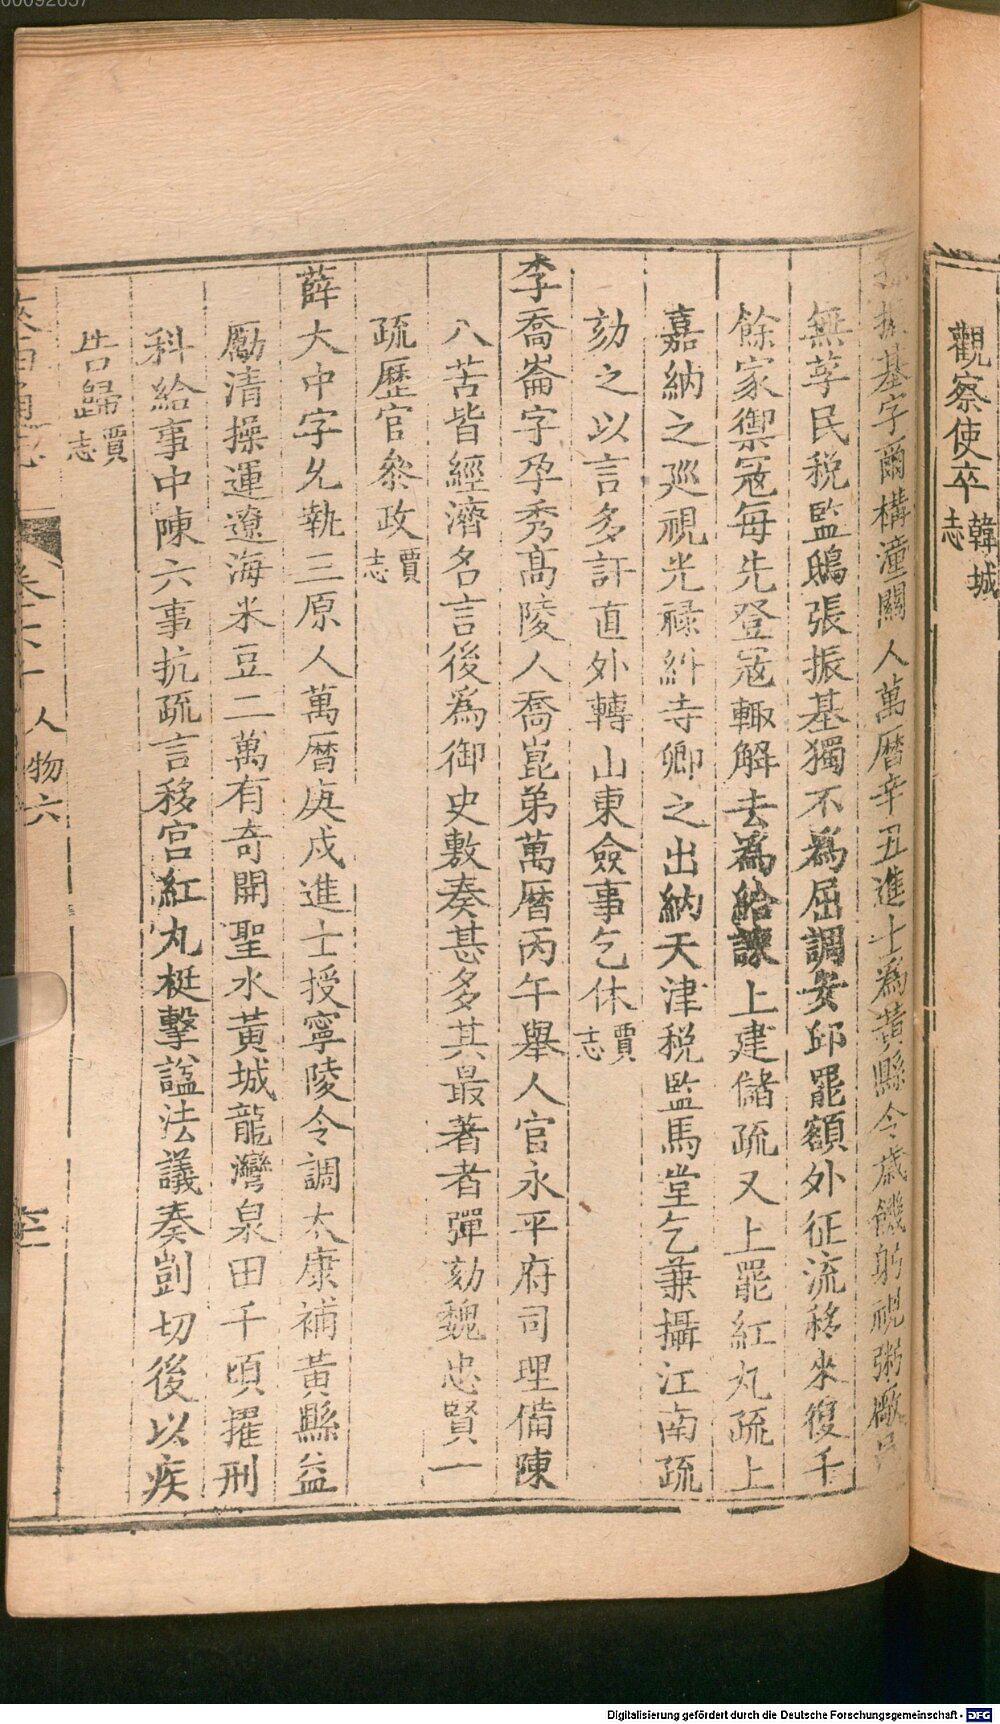 00092657
觀察使卒韓城志
振基字爾構潼關人萬曆辛丑進士為黃縣令歲饑躬視粥廠
無莩民稅監鴟張振基獨不為屈調安邱罷額外征流移來復千
餘家禦寇每先登寇輙解去為給諫上建儲疏又上罷紅丸疏上
嘉納之廵視光祿糾寺卿之出納天津稅監馬堂乞兼攝江南疏
劾之以言多訐直外轉山東僉事乞休賈志
李喬崙字孕秀高陵人喬崑弟萬曆丙午舉人官永平府司理備陳
八苦皆經濟名言後為御史敷奏甚多其最著者彈劾魏忠賢一
疏歷官叅政賈志
薛大中字允執三原人萬曆庚戌進士授寧陵令調太康補黃縣益
勵清操運遼海米豆二萬有奇開聖水黃城龍灣泉田千頃擢刑
科給事中陳六事抗疏言移宮紅丸梃擊諡法議奏剴切後以疾
告歸賈志
人物六
Digitalisierung gefördert durch die Deutsche Forschungsgemeinschaft - DFG